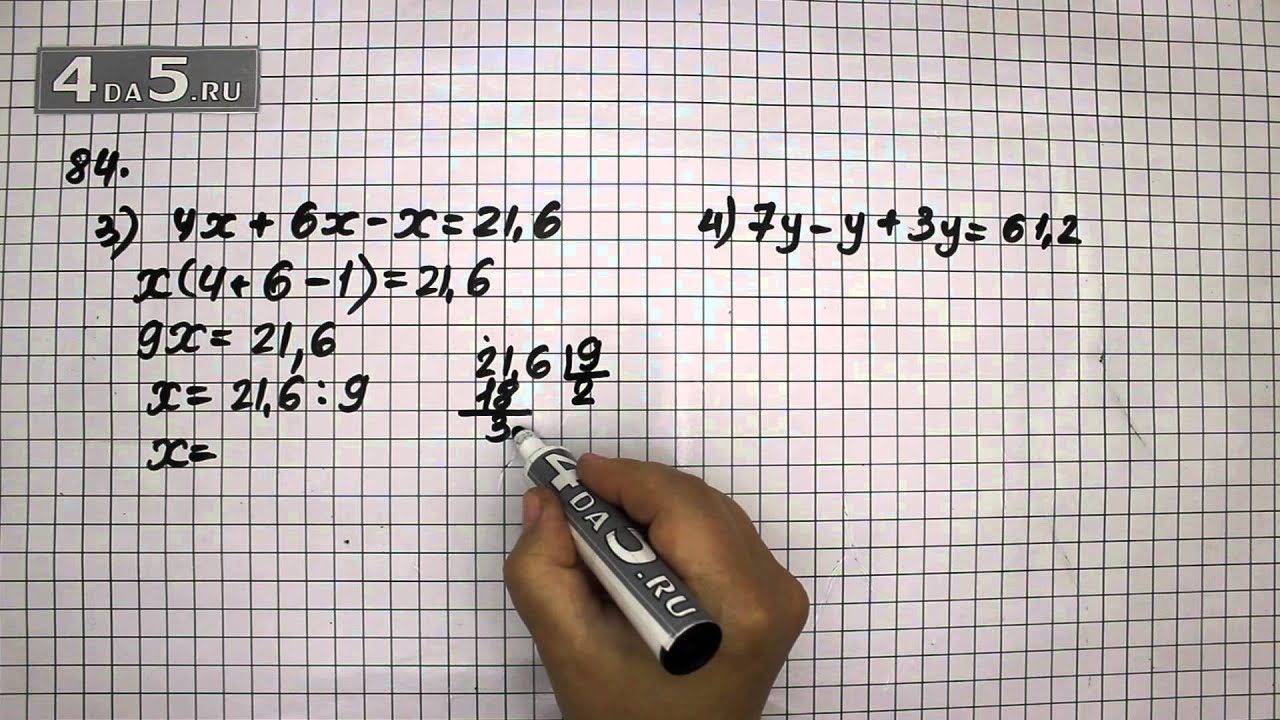 4DA5.RU
84.
3) 4x + 6x - x = 21,6
x(4 + 6 - 1) = 21,6
9x = 21,6
x = 21,6 : 9
x =
21,6 | 9
18 2
3
4) 7y - y + 3y = 61,2
4DA5.RU